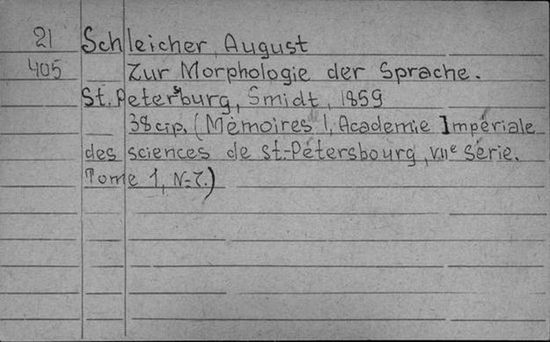 21 Schleicher, August
405 Zur Morphologie der Sprache.
St. Petersburg, Smidt, 1859
38 стр. (Mémoires l, Academie Impériale
des sciences de St.-Pétersbourg, VIIe Série.
Tome 1, N=7.)